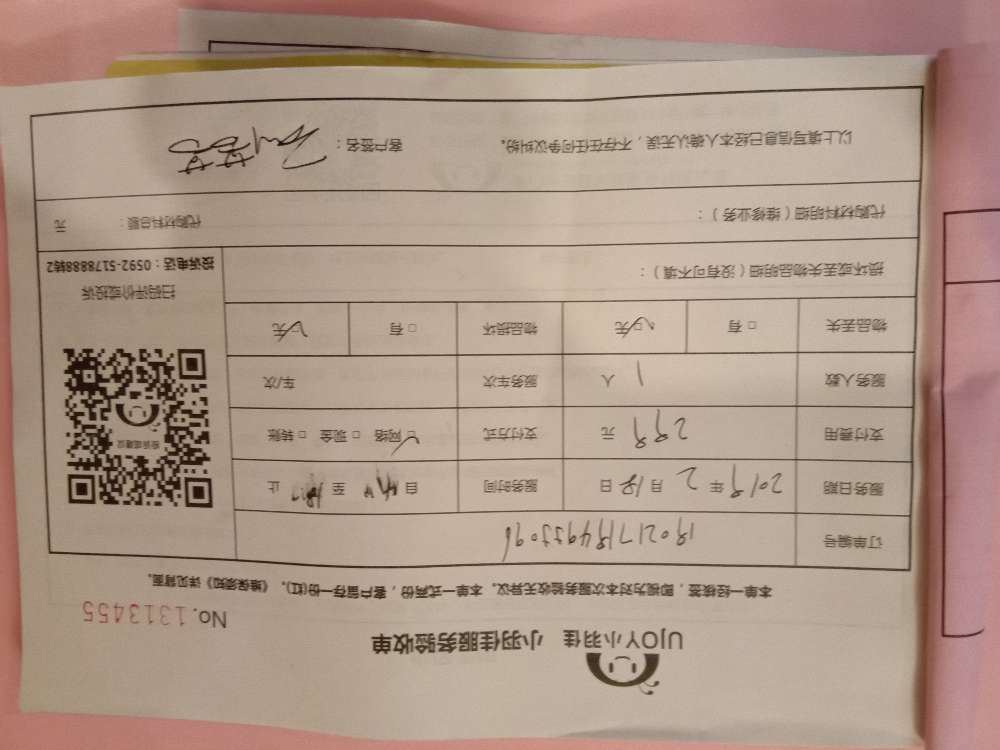 UJOY小羽佳 小羽佳服务验收单
No.1313455
本单一经核签，即视为对本次服务验收无异议。本单一式两份，客户留存一份(红)。《维保须知》详见背面。
订单编号
服务日期 2019 年 2 月 18 日 服务时间 自 至 止
支付费用 299 元 支付方式 网络 □ 现金 □ 转账
服务人数 1 人 服务车次 车/次
物品丢失 □ 有 □无 物品损坏 □ 有 无
损坏或丢失物品明细（没有可不填）：
代购材料明细（维修业务）： 代购材料总额： 元
以上填写信息已经本人确认无误，不存在任何争议纠纷。 客户签名：
投诉或建议
扫码评价或投诉
投诉电话：0592-5178888转2